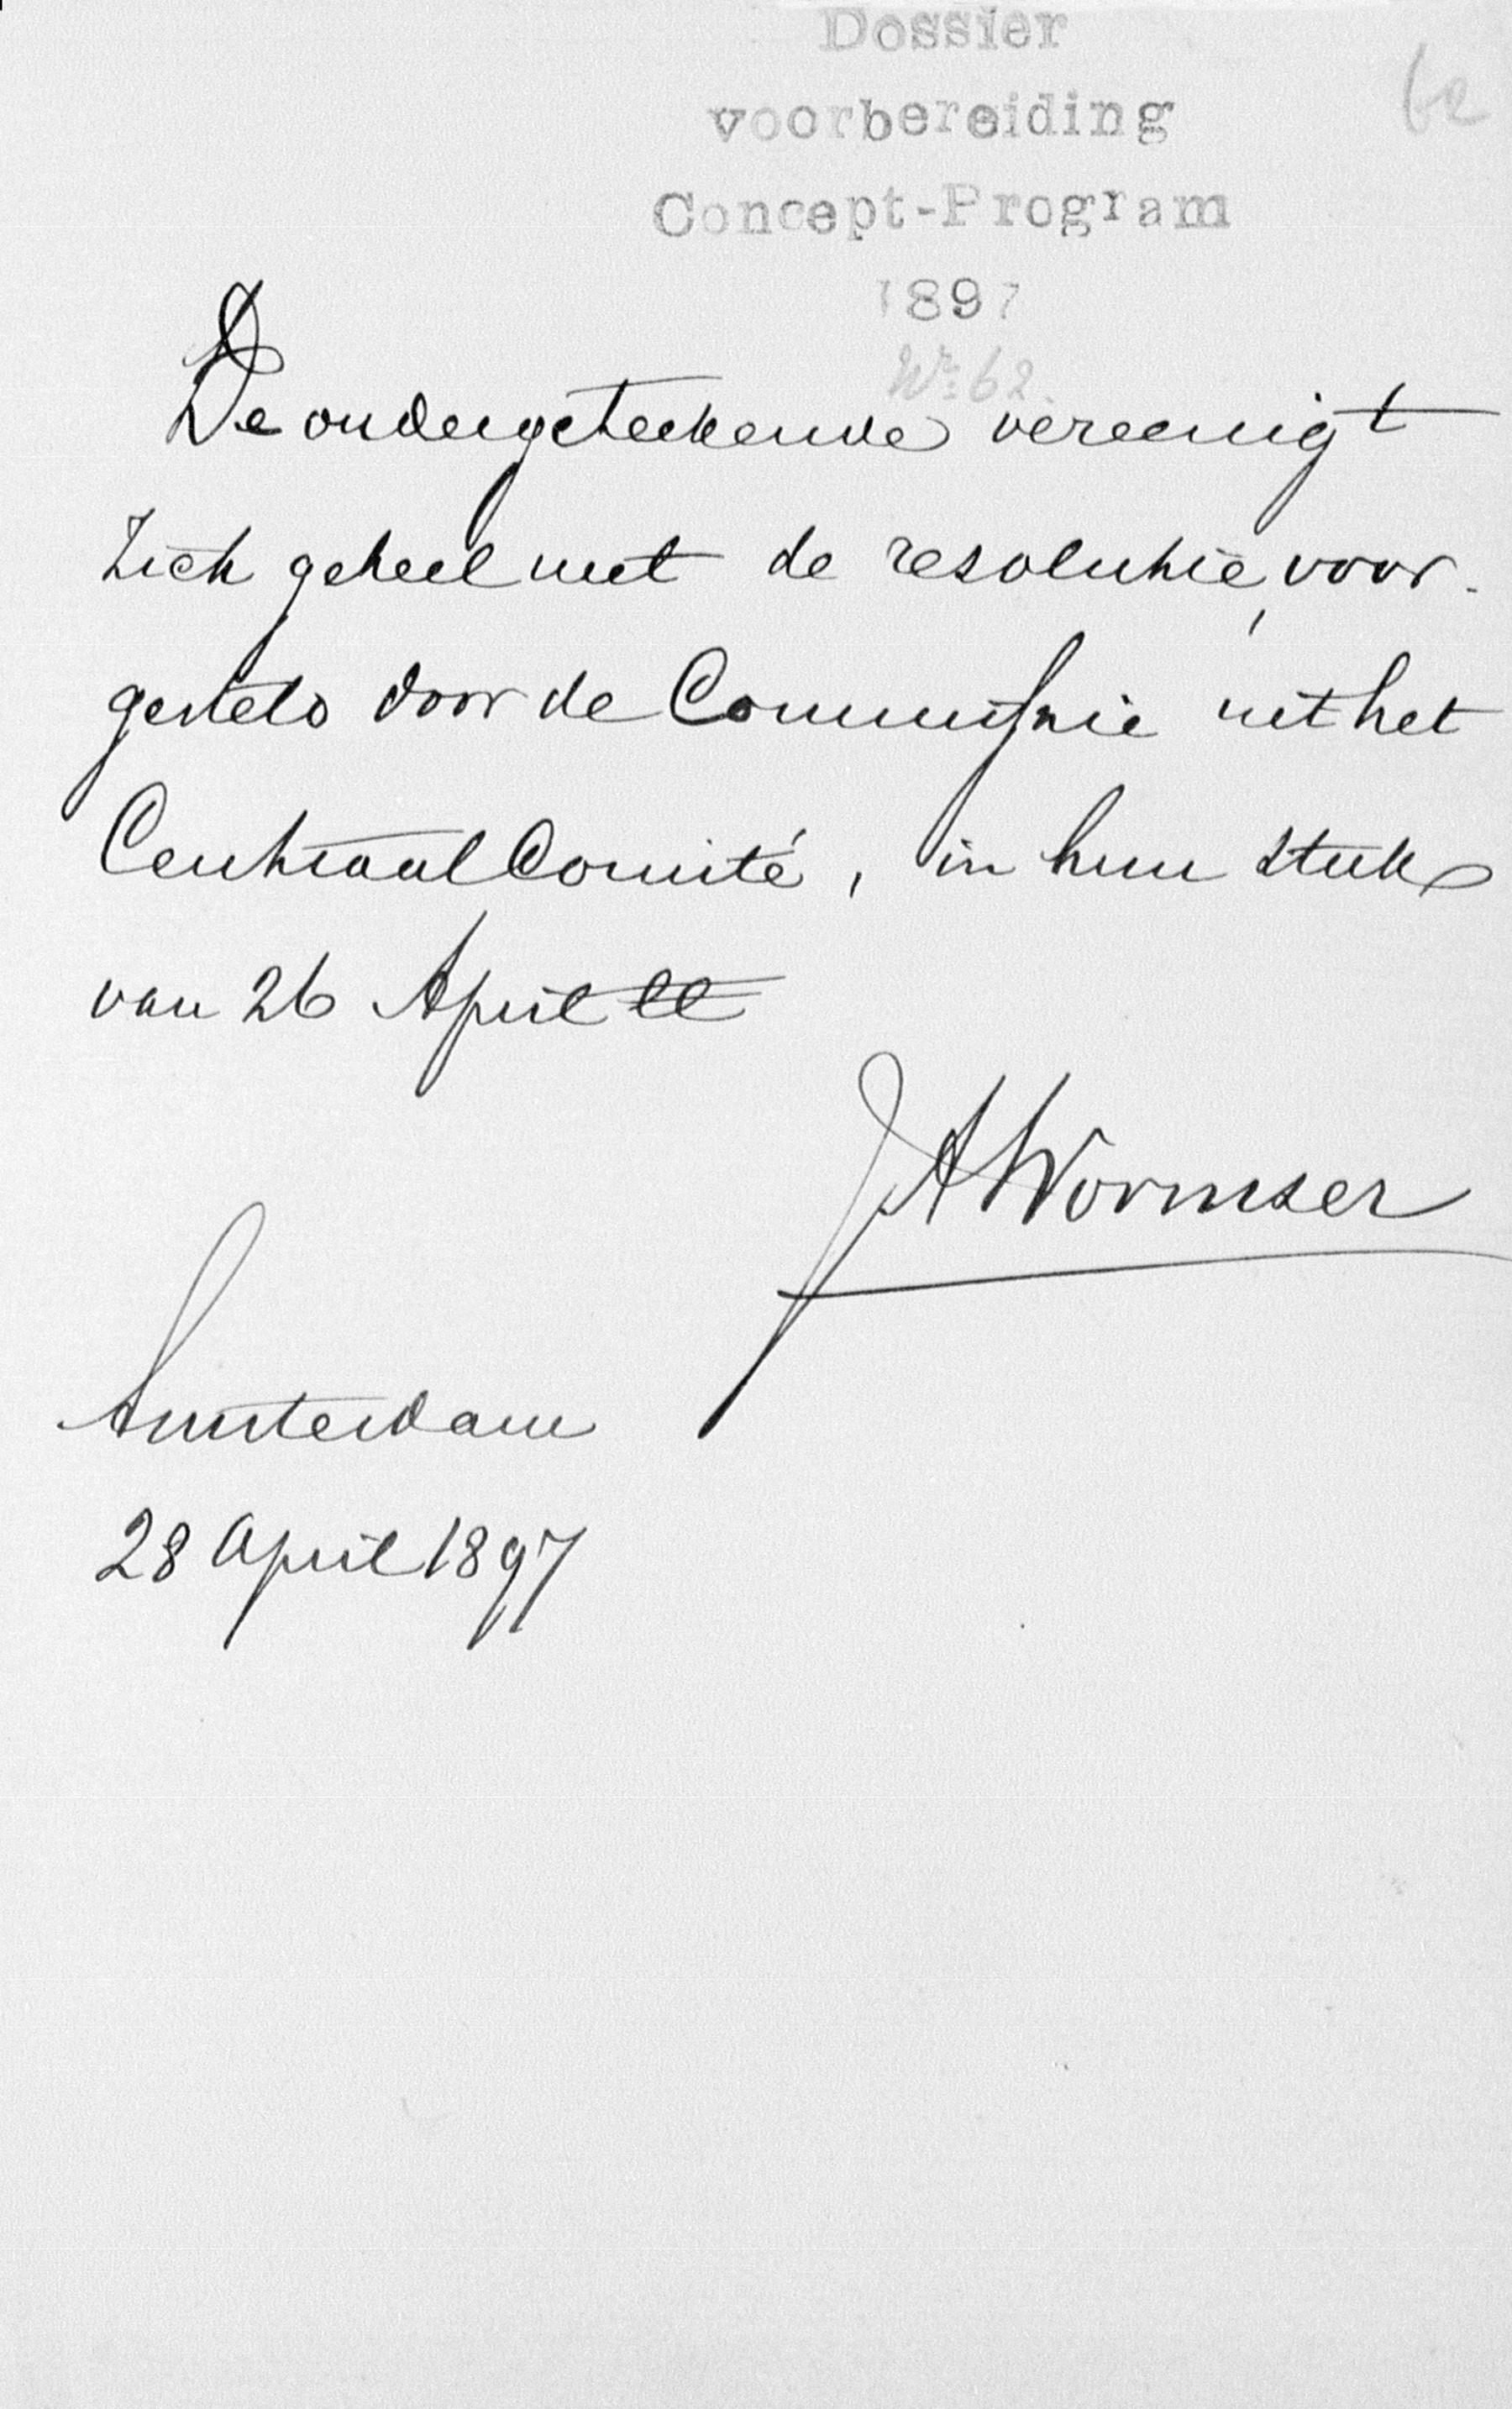 Dossier
62
voorbereiding
Concept-Program
1897
No 62.
De ondergeteekende vereenigt
zich geheel met de resolutie, voor-
gesteld door de Commissie uit het
Centraal Comité, in hun stuk
van 26 April ll
JAWormser
Amsterdam
28 April 1897